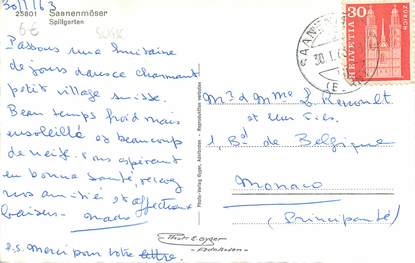 30/1/63
25801 Saanenmöser
Spillgerten
6€ SUISSE
Passons une huitaine
de jours dans ce charmant
petit village suisse.
Beau temps froid mais
ensoleillé et beaucoup
de neige. Vous espérant
en bonne santé, recevez
nos amitiés et affectueux
baisers
P.S. Merci pour votre lettre.
Photo-Verlag Gyger, Adelboden - Reproduktion verboten
SAANEN
30.1.63
30
HELVETIA
ZÜRICH
Mr et Mme L.
et leur fils
1, Bd de Belgique
Monaco
(Principauté)
Photo E. Gyger
- Adelboden -